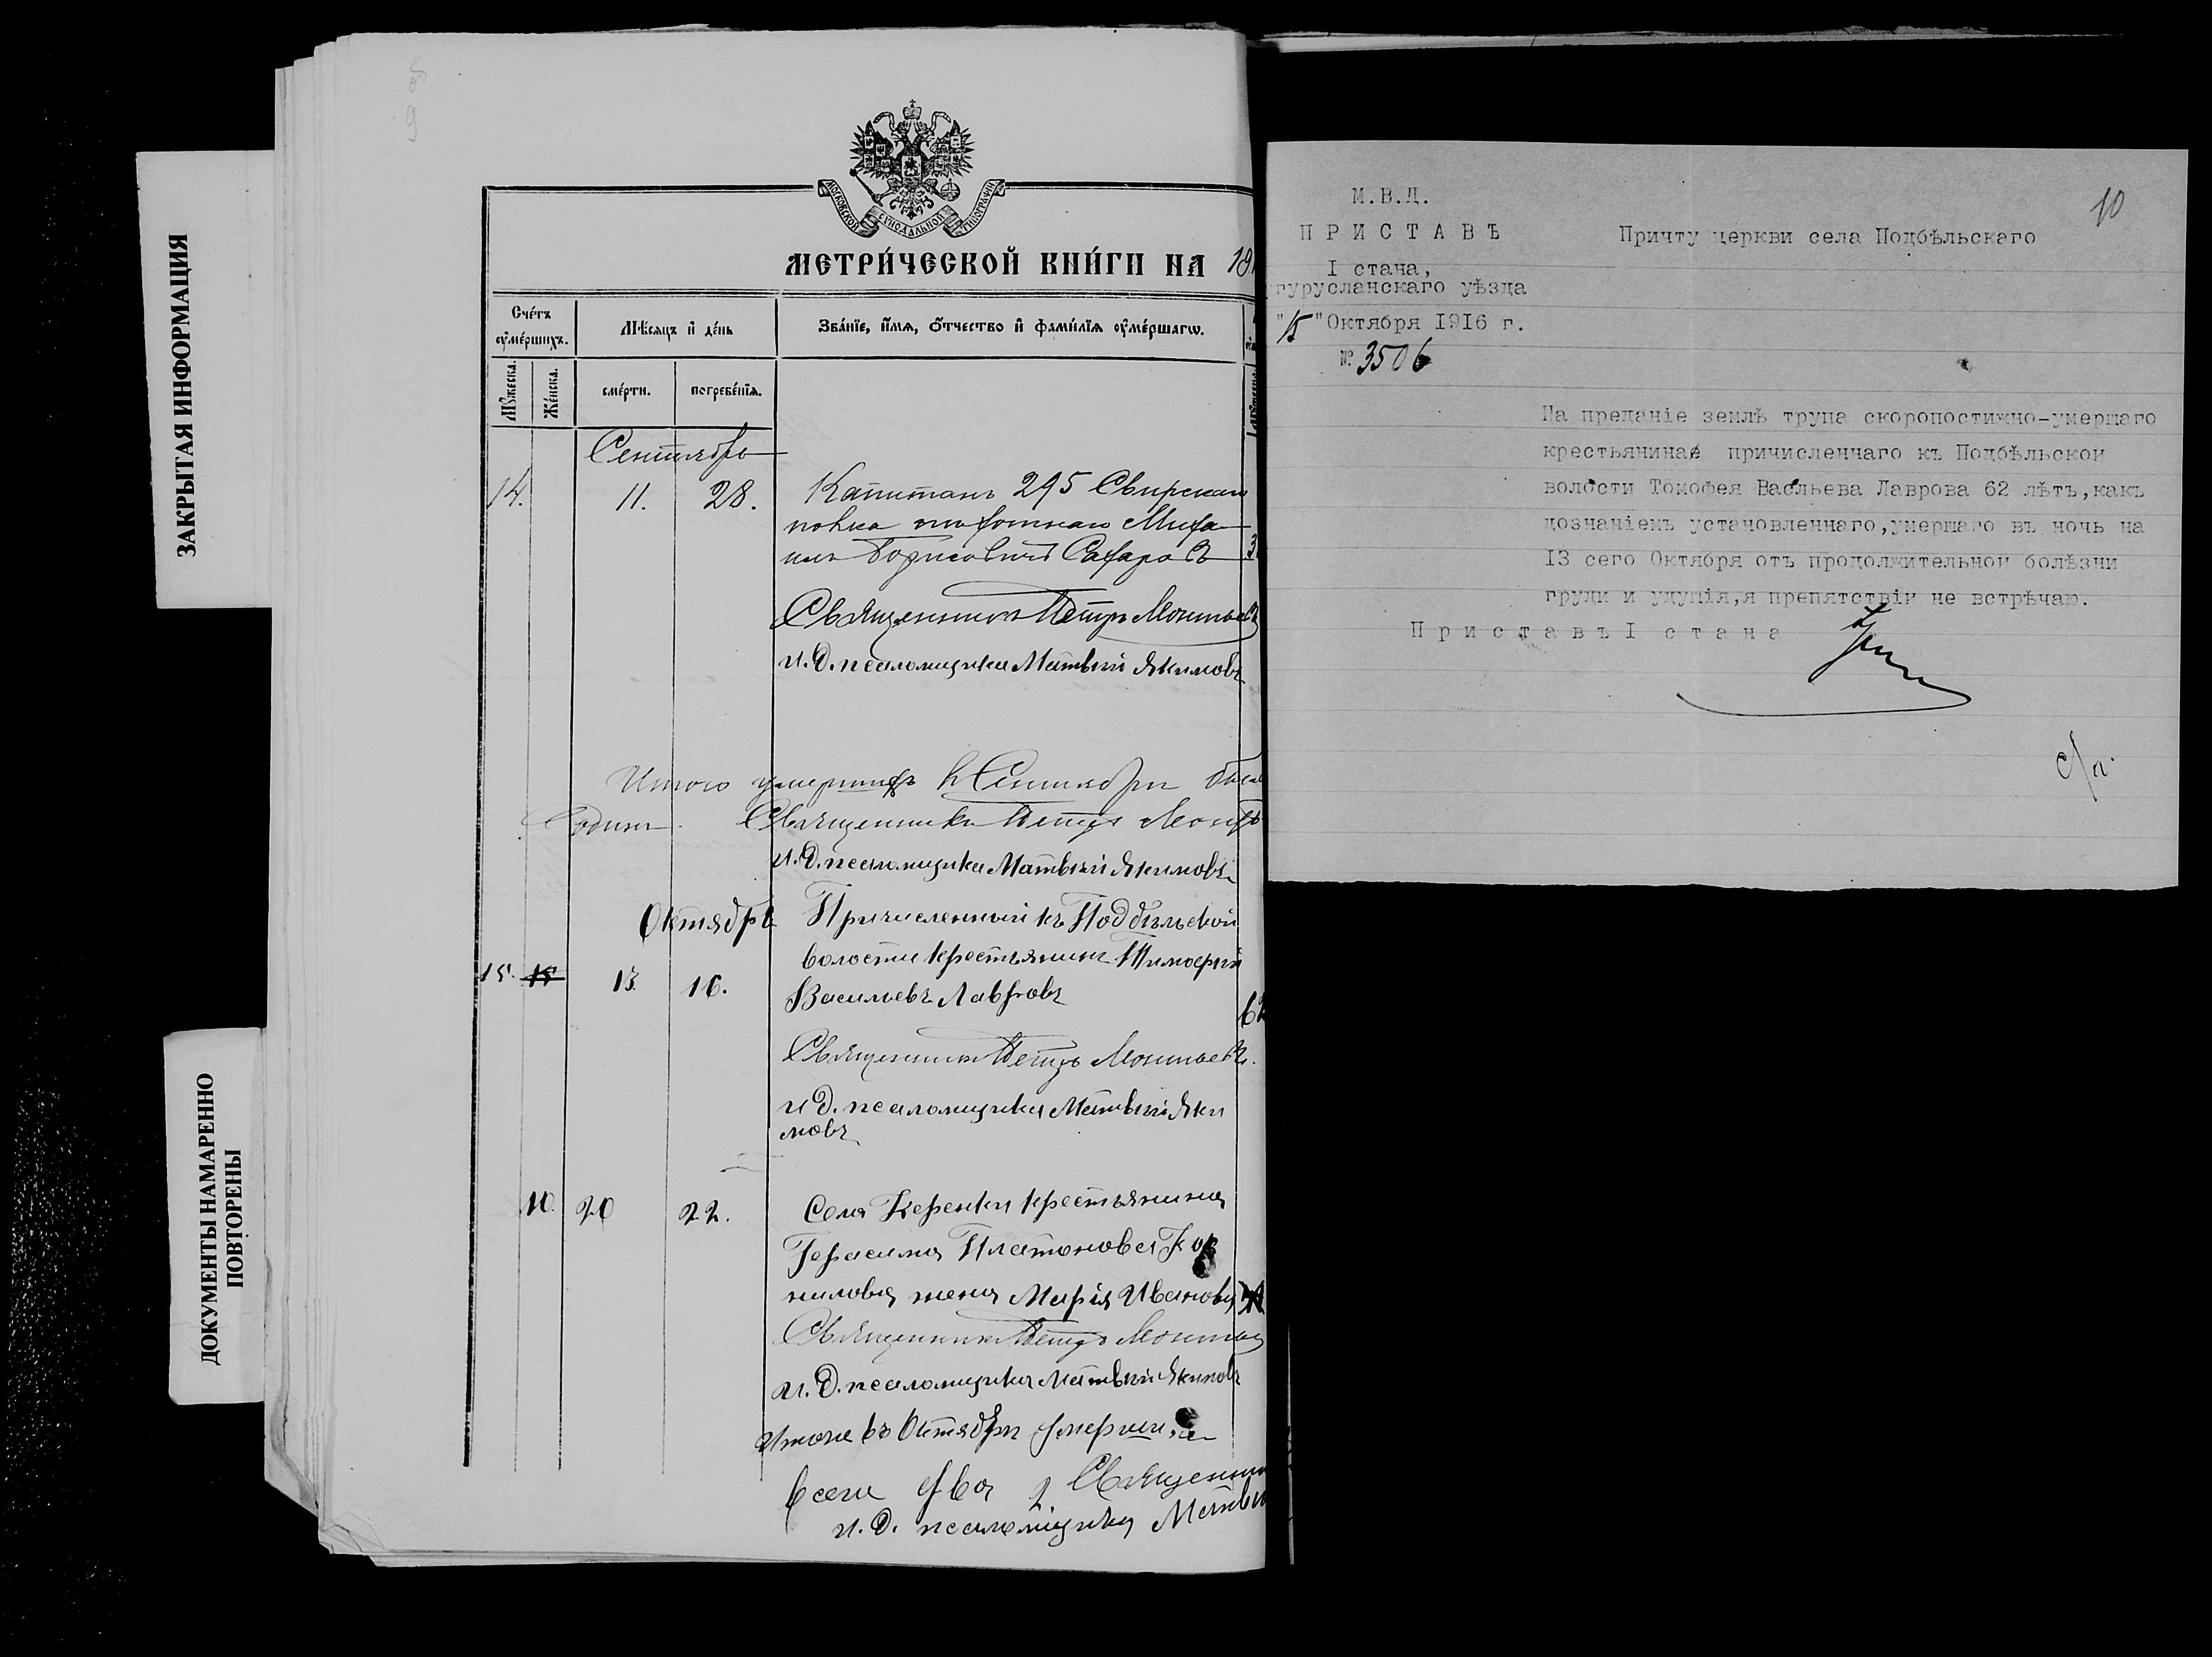 ЗАКРЫТАЯ ИНФОРМАЦИЯ
ДОКУМЕНТЫ НАМАРЕННО
ПОВТОРЕНЫ
МОСКОВСКОЙ СѴНОДАЛЬНОЙ ТИПОГРАФІИ
МЕТРИ́ЧЕСКОЙ КНИ́ГИ НА 191
Сче́тъ
ᲂу҆ме́ршихъ.
Мѣ́сяцъ и҆ де́нь
Зва́нїе, и҆́мѧ, ѻ҆́тчество и҆ фами́лїѧ ᲂу҆ме́ршагѡ.
Мꙋ́жеска.
Же́нска.
сме́рти.
погребе́нїѧ.
Сентябрь
14. 11. 28. Капитанъ 295 Свирскаго
полка пѣхотнаго Миха-
илъ Борисовичъ Сахаровъ
Священникъ Петръ Монтьевъ
и. д. псаломщика Матвѣй Якимовъ
Итого умершихъ въ Сентябрѣ былъ
одинъ. Священникъ Петръ
и. д. псаломщика Матвѣй Якимовъ
Октябрь Причисленный къ Подбѣльской
волости крестьянинъ Тимоѳей
15. 15 13. 16. Васильевъ Лавровъ
62
Священникъ Петръ Монтьевъ.
и д. псаломщика Матвѣй Яки
мовъ
10. 20 22. Села Керенки крестьянина
Герасима Платонова Кор
нилова жена Марія Иванова
Священникъ Петръ
и. д. псаломщика Матвѣй Якимовъ
Итого въ Октябрѣ умершихъ
всего два 2 Священни
и. д. псаломщика Матвѣй
М.В.Д.
10
ПРИСТАВЪ
Причту церкви села Подбѣльскаго
I стана,
гурусланскаго уѣзда
"15" Октября 1916 г.
№ 3506
На преданіе землѣ трупа скоропостижно-умершаго
крестьянина причисленнаго къ Подбѣльской
волости Томофея Васльева Лаврова 62 лѣтъ, какъ
дознаніемъ установленнаго, умершаго въ ночь на
13 сего Октября отъ продолжительной болѣзни
груди и удушія, я препятствій не встрѣчаю.
Приставъ I стана